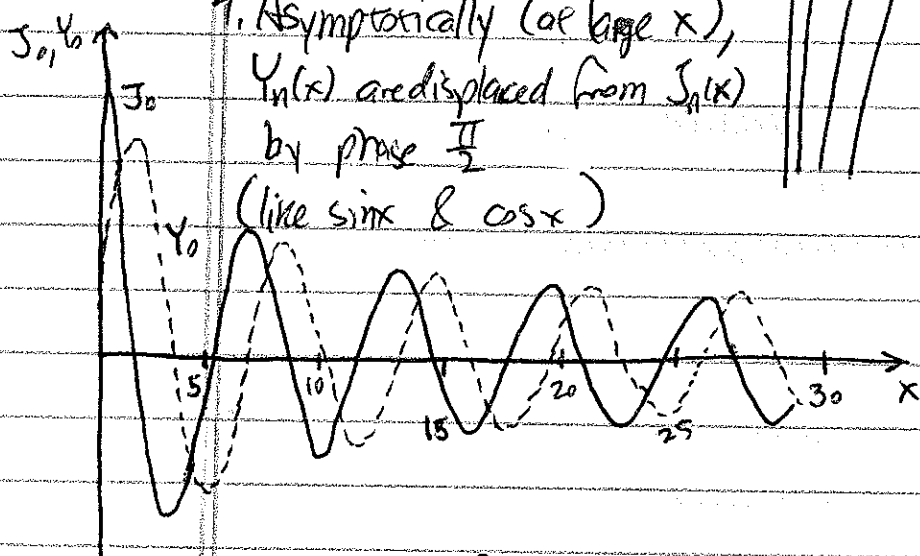 1. Asymptotically (at large x),
J₀, Y₀
Yₙ(x) are displaced from Jₙ(x)
J₀
by phase π/2
(like sinx & cosx)
Y₀
5
10
15
20
25
30
x